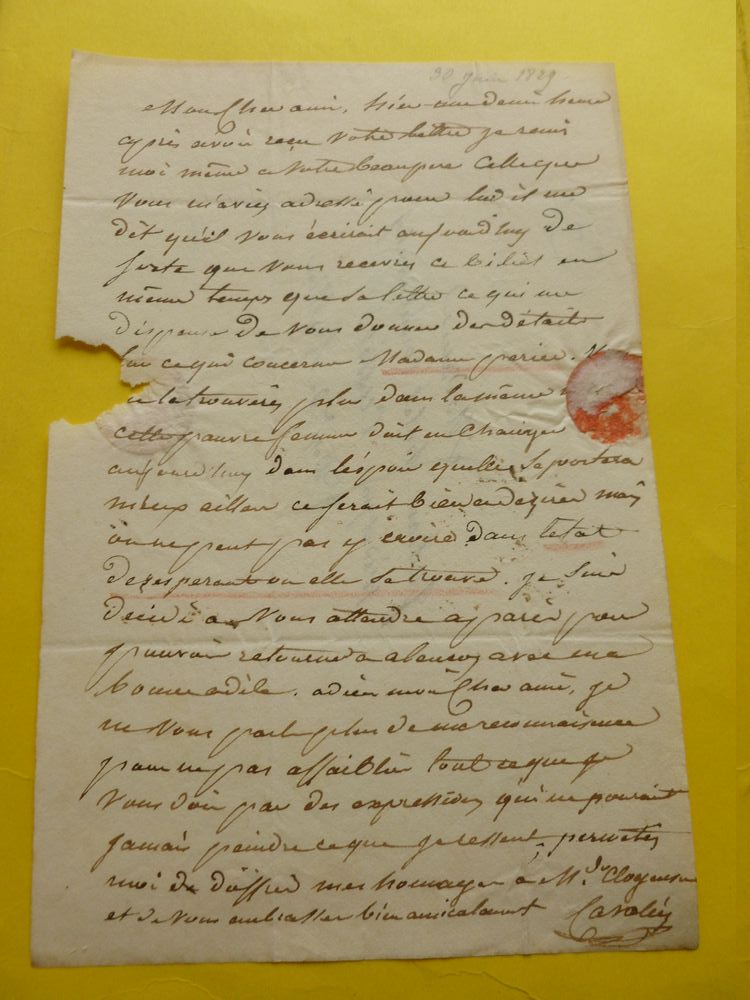 30 juin 1829
Mon Cher ami, hier une demi heure
après avoir reçu votre lettre je remis
moi même a votre beaupere celle que
vous m'aviez adressé pour lui il me
dit qu'il vous écrirait aujourd'huy de
sorte que vous receviez ce billet en
même temps que sa lettre ce qui me
dispense de vous donner des détails
sur ce qui concerne Madame perier.
ne la trouverés plus dans la même
cette pauvre femme doit en changer
aujourd'huy dans l'éspoir quelle se portera
mieux ailleur ce serait bien a dezirer mais
on ne peut pas y croire dans l'etat
desesperant ou elle se trouve. je suis
décidé a vous attendre a paris pour
pouvoir retourner a alencon avec ma
bonne adéle. adieu mon Cher ami, je
ne vous parle plus de ma reconnaissance
pour ne pas affaiblir tout ce que je
vous dois par des expressions qui ne pouraient
jamais peindre ce que je ressent, permetés
moi de d'offrir mes homages a M.de Clogenson
et de vous embrasser bien amicalement